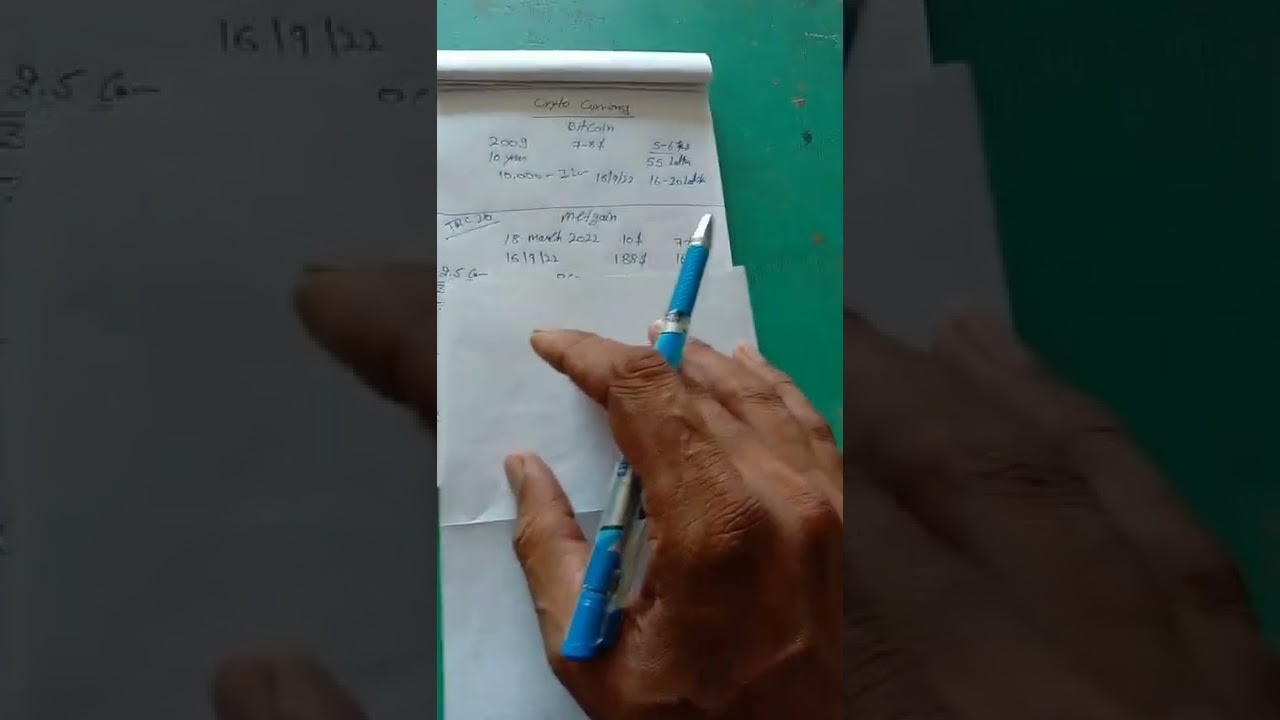 Crypto Currency
Bitcoin
2009 7-8$ 5-6 Rs
10 years 55 Lakhs
10,000 - 18/9/22 16-20 Lakhs
TRC 20 Metgain
18 march 2022 10$ 7
16/9/22 188$ 16
2.5 Cr 0.